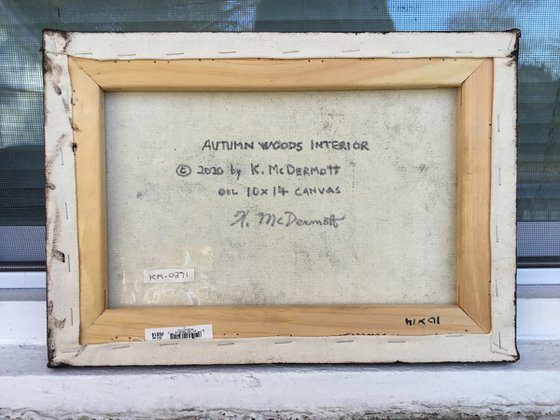 AUTUMN WOODS INTERIOR
© 2020 by K. McDERMOTT
OIL 10x14 CANVAS
K. McDermott
KM-0271
10x14